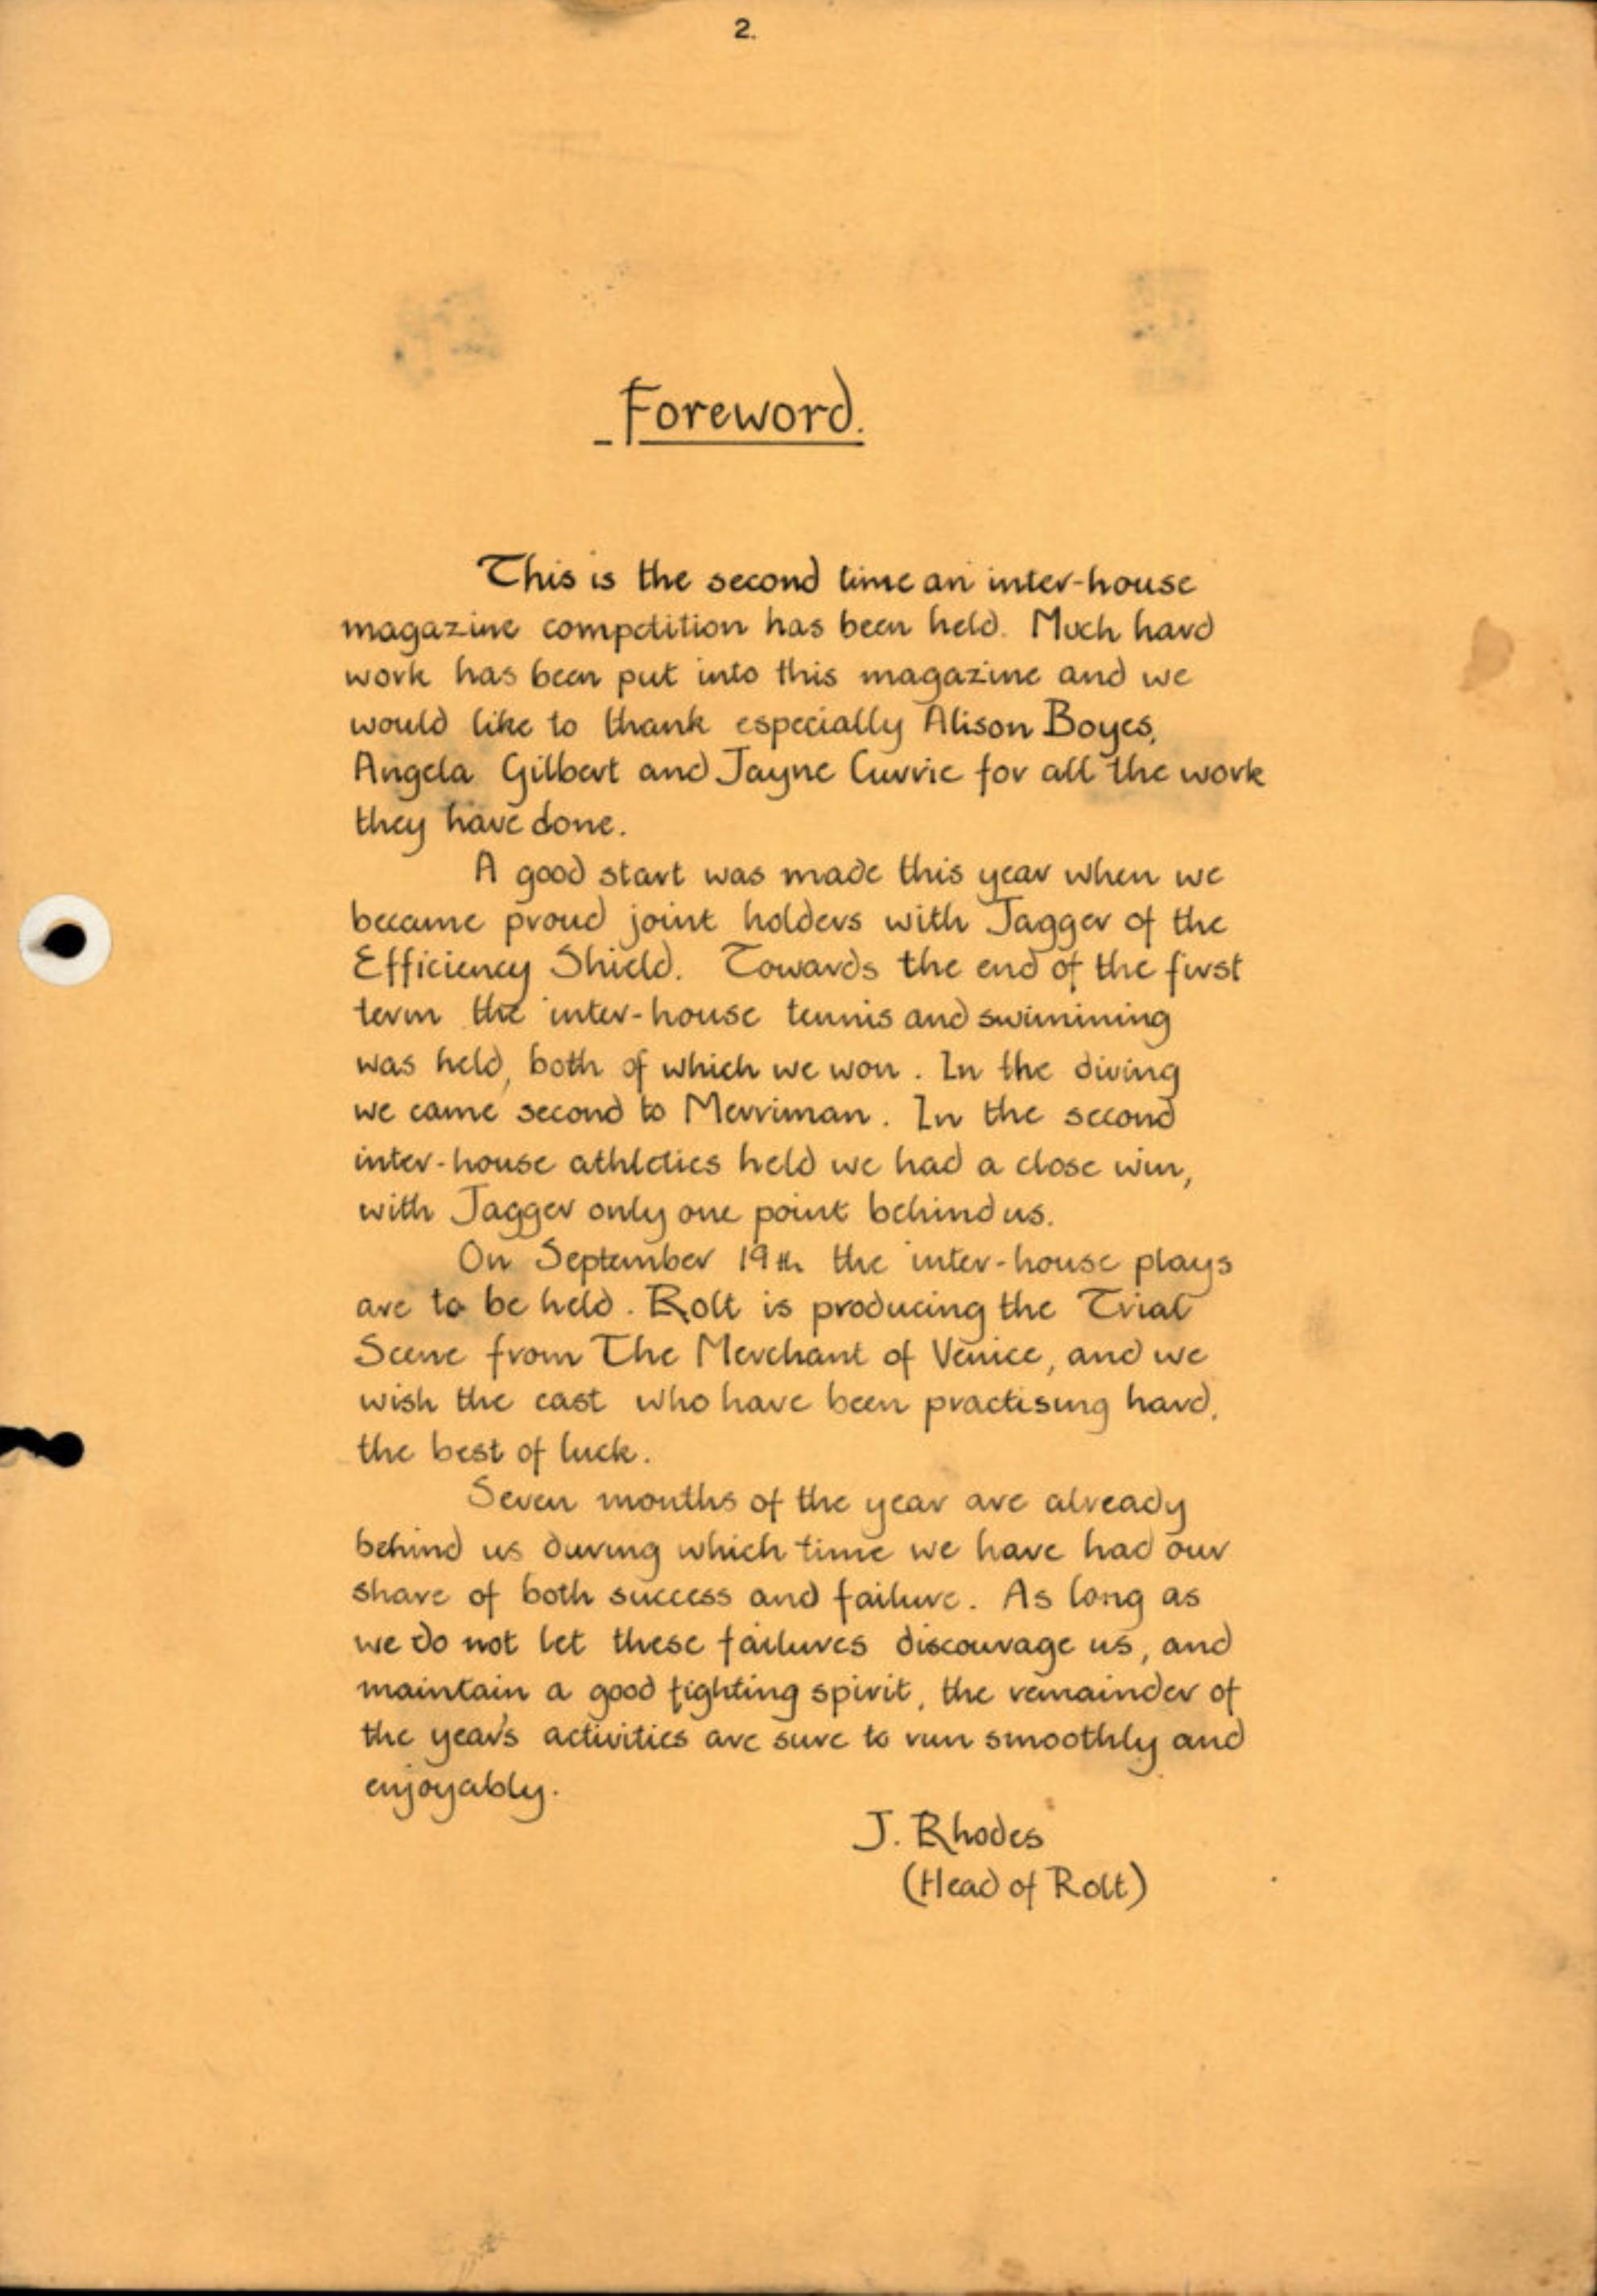 2.
Foreword.
This is the second time an inter-house
magazine competition has been held. Much hard
work has been put into this magazine and we
would like to thank especially Alison Boyes,
Angela Gilbert and Jayne Currie for all the work
they have done.
A good start was made this year when we
became proud joint holders with Jagger of the
Efficiency Shield. Towards the end of the first
term the inter-house tennis and swimming
was held, both of which we won. In the diving
we came second to Merriman. In the second
inter-house athletics held we had a close win,
with Jagger only one point behind us.
On September 19th the inter-house plays
are to be held. Rolt is producing the Trial
Scene from The Merchant of Venice, and we
wish the cast who have been practising hard,
the best of luck.
Seven months of the year are already
behind us during which time we have had our
share of both success and failure. As long as
we do not let these failures discourage us, and
maintain a good fighting spirit, the remainder of
the year's activities are sure to run smoothly and
enjoyably.
J. Rhodes
(Head of Rolt)